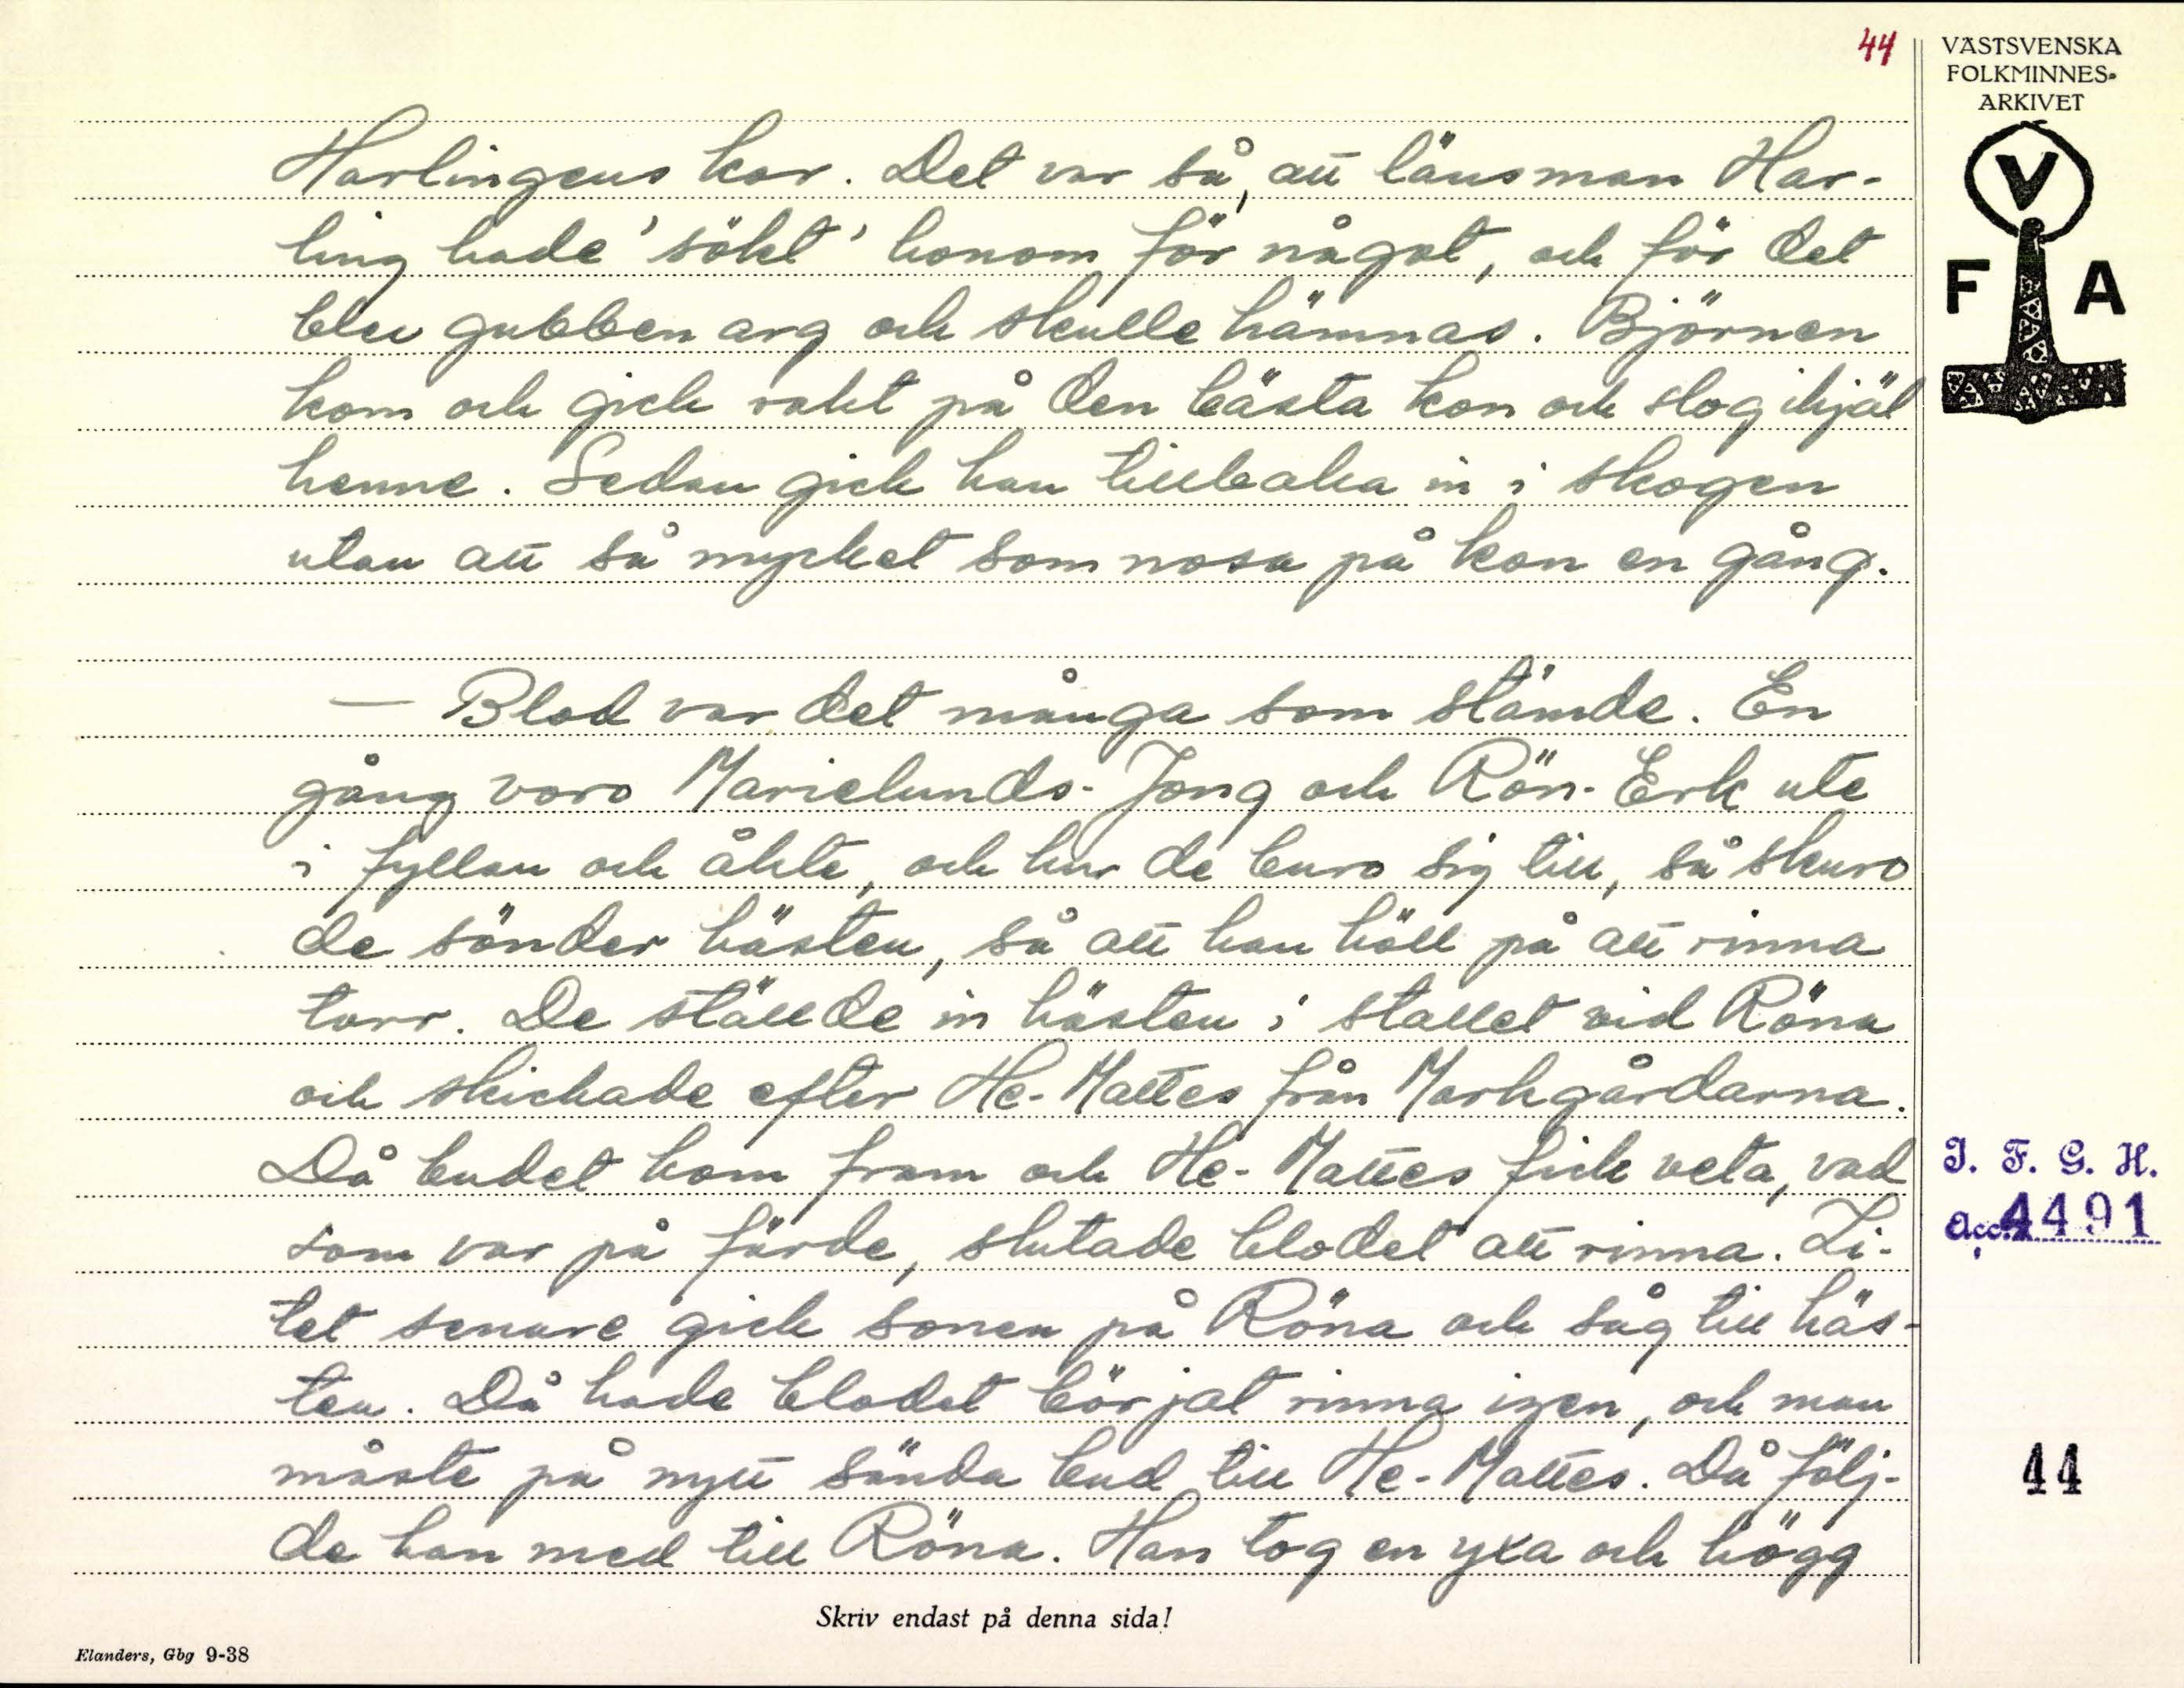 44
VÄSTSVENSKA
FOLKMINNES-
ARKIVET
V
F A
Harlingens kor. Det var så, att länsman Har-
ling hade 'sökt' honom för något, och för det
blev gubben arg och skulle hämnas. Björnen
kom och gick rakt på den bästa kon och slog ihjäl
henne. Sedan gick han tillbaka in i skogen
utan att så mycket som nosa på kon en gång.
— Blod var det många som stämde. En
gång voro Marielunds-Jong och Rön-Erk ute
i fyllan och åkte, och hur de buro sig till, så skuro
de sönder hästen, så att han höll på att rinna
torr. De ställde in hästen i stallet vid Röna
och skickade efter He-Mattes från Markgårdarna.
Då budet kom fram och He-Mattes fick veta, vad
som var på färde, slutade blodet att rinna. Li-
tet senare gick sonen på Röna och såg till häs-
ten. Då hade blodet börjat rinna igen, och man
måste på nytt sända bud till He-Mattes. Då följ-
de han med till Röna. Han tog en yxa och högg
I. F. G. H.
Acc. 4491
44
Skriv endast på denna sida!
Elanders, Gbg 9-38